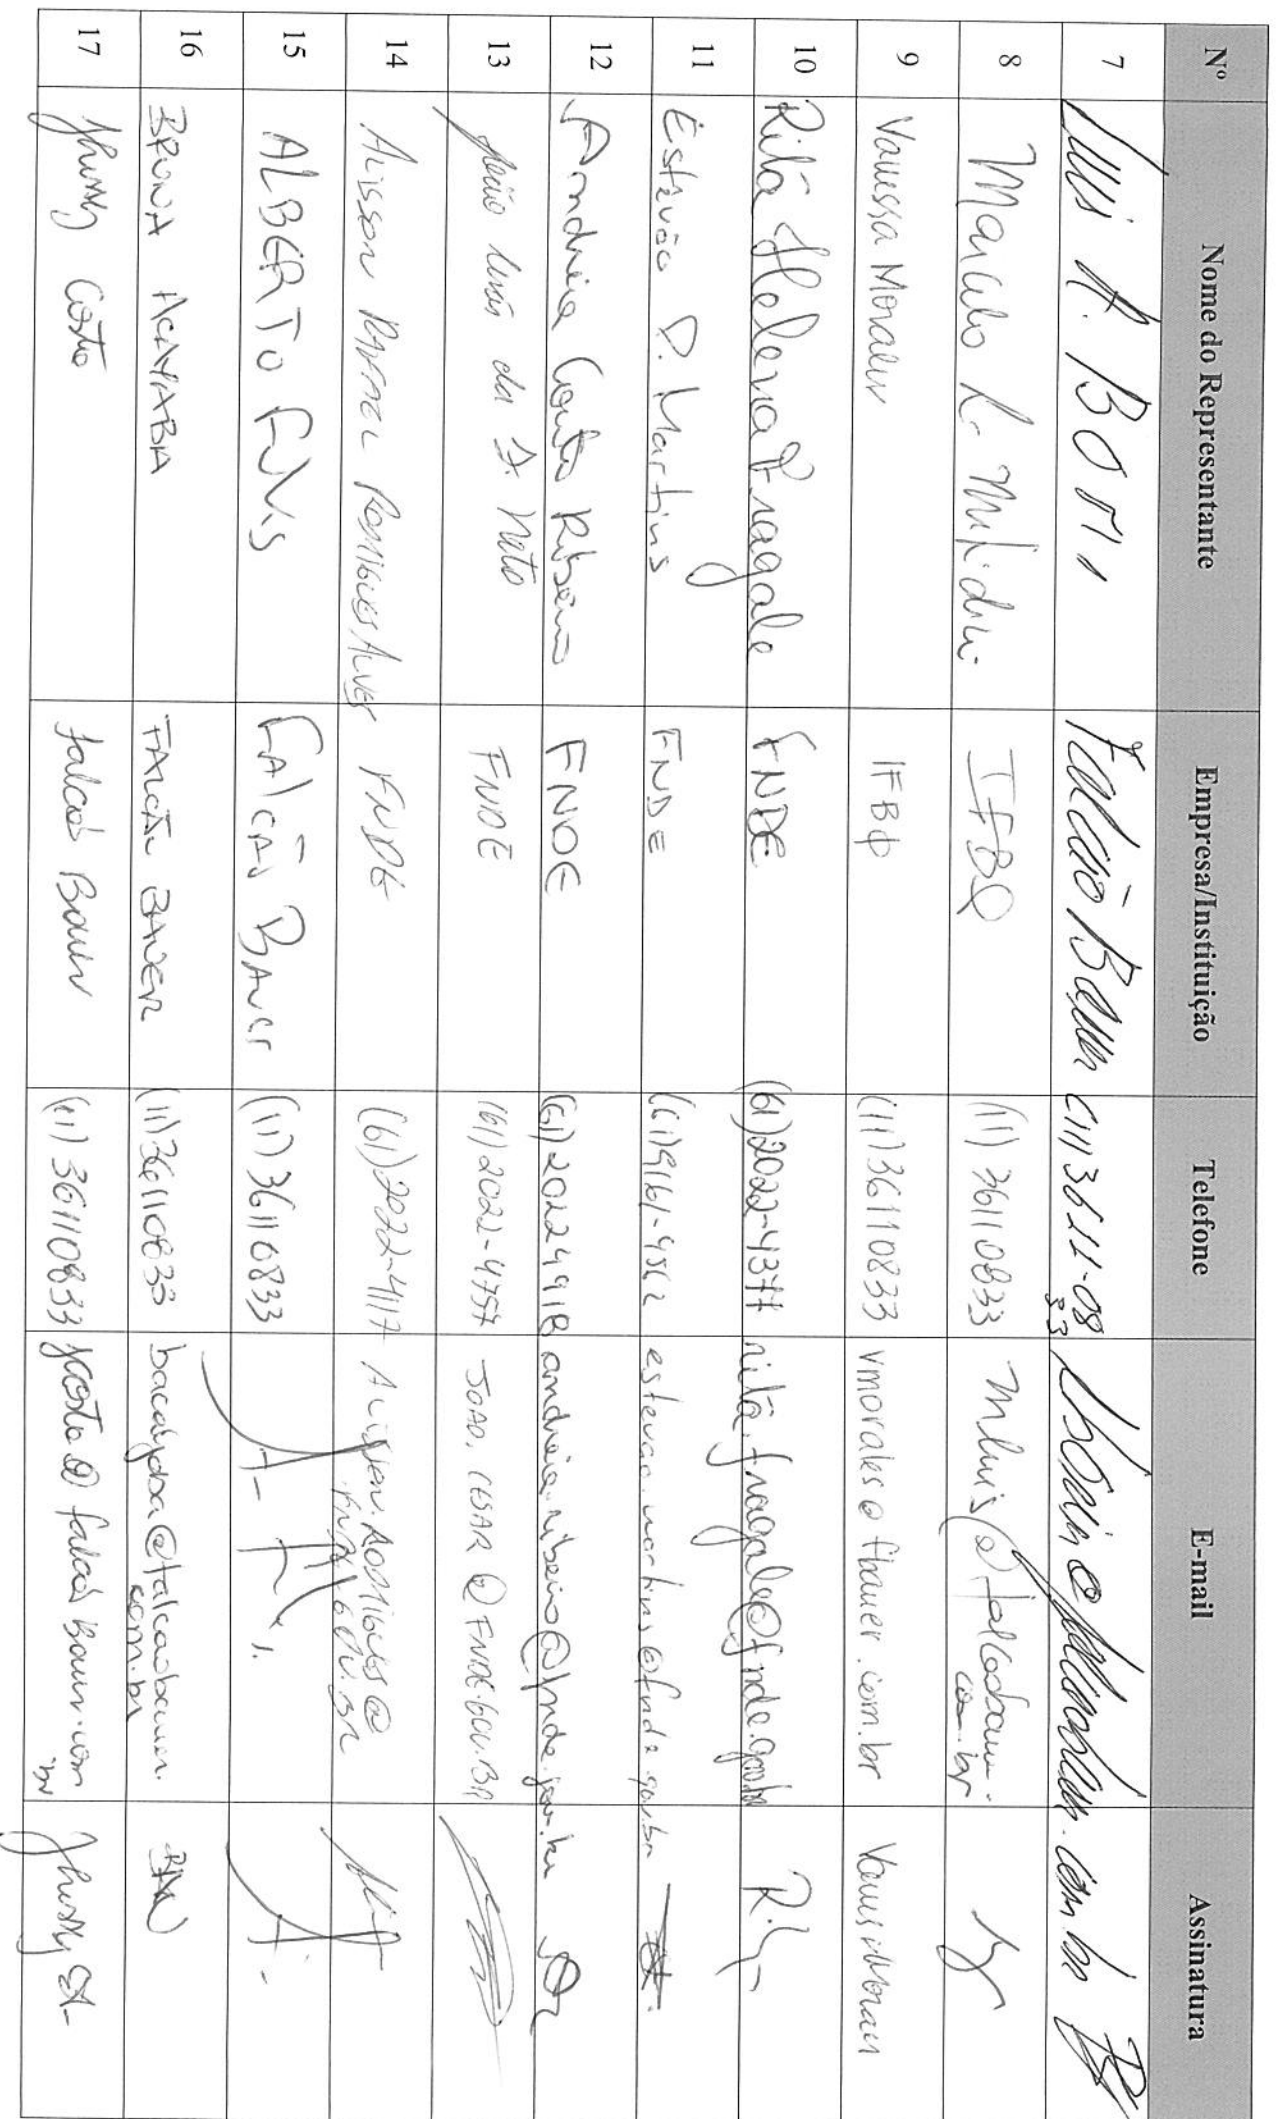 Nº Nome do Representante Empresa/Instituição Telefone E-mail Assinatura
7 Luis A. Bo Falcão Bauer (11) 3611-0833
8 Marcelo L. IFBQ (11) 36110833 mluis@falcaobauer.com.br
9 Vanessa Morales IFBQ (11) 36110833 vmorales@fbauer.com.br
10 Rita Helena Fragale FNDE (61) 2022-4377 rita.fragale@fnde.gov.br
11 Estevão P. Martins FNDE (61) 9161-9562 estevao.martins@fnde.gov.br
12 Andréia Couto Ribeiro FNDE (61) 20224918 andreia.ribeiro@fnde.gov.br
13 João da S. Neto FNDE (61) 2022-4757 JOAO.CESAR@FNDE.GOV.BR
14 Alisson Rafael Rodrigues Alves FNDE (61) 2022-4117 Alisson.Rodrigues@
FNDE.GOV.BR
15 ALBERTO Falcão Bauer (11) 36110833
16 BRUNA ACAYABA FALCÃO BAUER (11) 36110833 bacayaba@falcaobauer.
com.br
17 Costa Falcão Bauer (11) 36110833 jcosta@falcaobauer.com
br